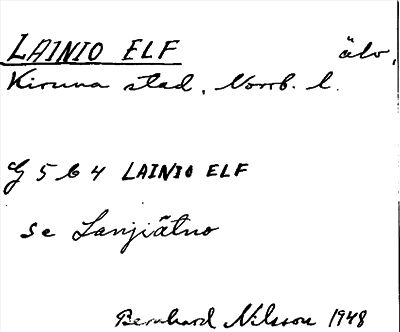 LAINIO ELF älv,
Kiruna stad, Norrb. l.
G 5 6 4 LAINIO ELF
se Lanjiätno
Bernhard Nilsson 1948